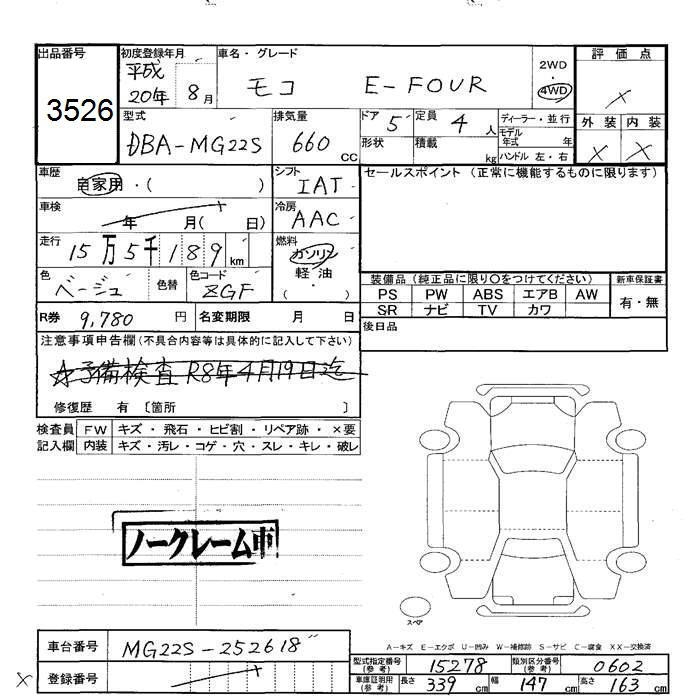 出品番号 3526
初度登録年月 平成20年 8月
車名・グレード モコ E-FOUR
2WD・4WD
評価点
外装 × 内装 ×
型式 DBA-MG22S
排気量 660 cc
ドア 5 定員 4 人
形状 積載 kg
ディーラー・並行
モデル年式 年
ハンドル 左・右
車歴 自家用・( )
シフト IAT
セールスポイント (正常に機能するものに限ります)
車検 年 月( 日)
冷房 AAC
走行 15万5千189 km
燃料 ガソリン
軽油
( )
色 ベージュ 色替 色コード ZGF
装備品 (純正品に限り○をつけてください) 新車保証書
PS PW ABS エアB AW 有・無
SR ナビ TV カワ
R券 9,780 円 名変期限 月 日
後日品
注意事項申告欄(不具合内容等は具体的に記入して下さい)
☆予備検査 R8年4月19日迄
修復歴 有 〔箇所 〕
検査員 FW キズ・飛石・ヒビ割・リペア跡・×要
記入欄 内装 キズ・汚レ・コゲ・穴・スレ・キレ・破レ
ノークレーム車
スペア
A-キズ E-エクボ U-凹み W-補修跡 S-サビ C-腐食 XX-交換済
車台番号 MG22S-252618
型式指定番号(参考) 15278 類別区分番号(参考) 0602
× 登録番号
車庫証明用(参考) 長さ 339 cm 幅 147 cm 高さ 163 cm